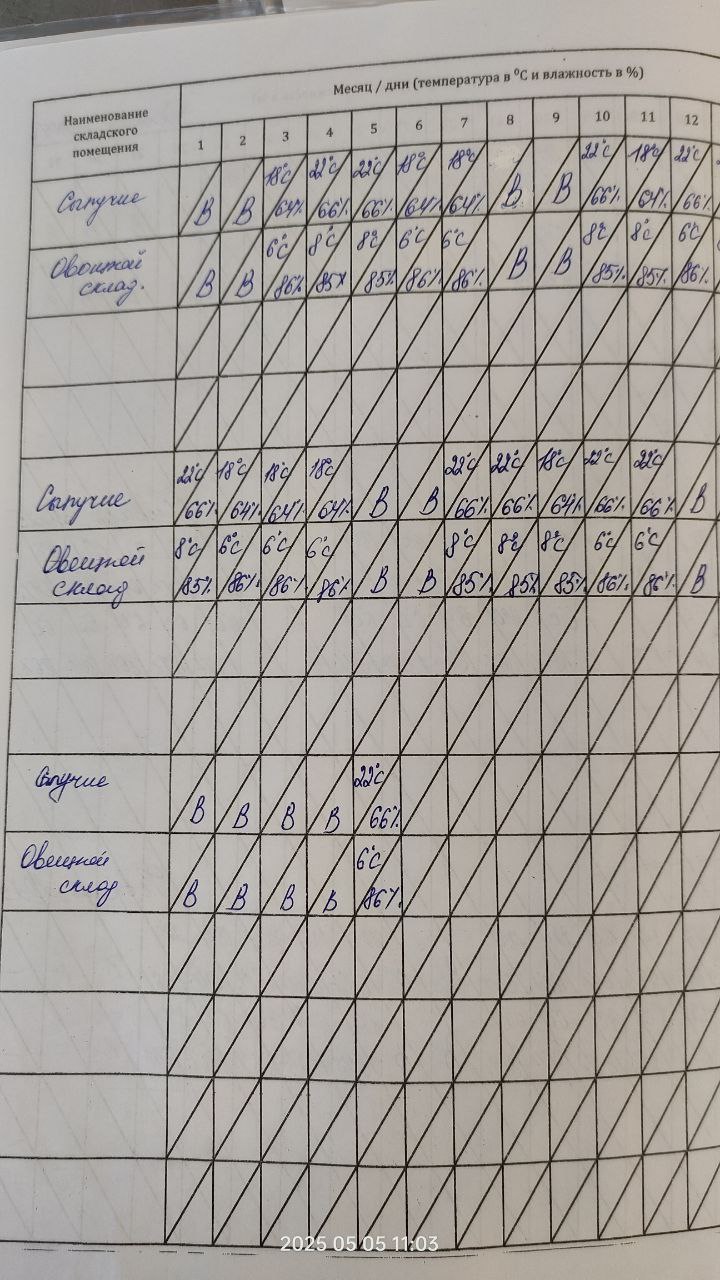 Наименование складского помещения
Месяц / дни (температура в °С и влажность в %)
1 2 3 4 5 6 7 8 9 10 11 12
Сыпучие
18°С 22°С 22°С 18°С 18°С 22°С 18°С 22°С
В В 64% 66% 66% 64% 64% В В 66% 64% 66%
Овощной
склад.
6°С 8°С 8°С 6°С 6°С 8°С 8°С 6°С
В В 86% 85% 85% 86% 86% В В 85% 85% 86%
Сыпучие
22°С 18°С 18°С 18°С 22°С 22°С 18°С 22°С 22°С
66% 64% 64% 64% В В 66% 66% 64% 66% 66% В
Овощной
склад
8°С 6°С 6°С 6°С 8°С 8°С 8°С 6°С 6°С
85% 86% 86% 86% В В 85% 85% 85% 86% 86% В
Сыпучие
22°С
В В В В 66%
Овощной
склад
6°С
В В В В 86%
2025 05 05 11:03